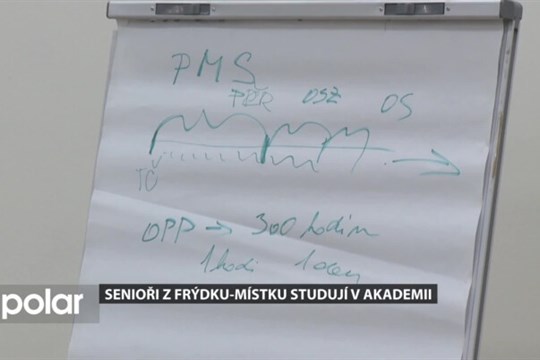 PMS
PŘR OSZ OS
TČ
OPP → 300 hodin
1 hodi
SENIOŘI Z FRÝDKU-MÍSTKU STUDUJÍ V AKADEMII
polar